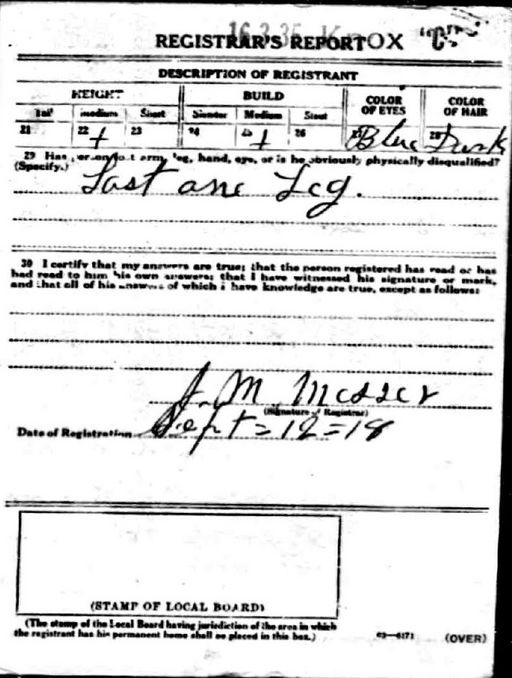 16 3 35 Knox "C"
REGISTRAR'S REPORT
DESCRIPTION OF REGISTRANT
HEIGHT BUILD COLOR OF EYES COLOR OF HAIR
Tall Medium Short Slender Medium Stout
21 22 + 23 24 25 + 26 27 Blue 28 Dark
29 Has person lost arm, leg, hand, eye, or is he obviously physically disqualified?
(Specify.) Lost one Leg.
30 I certify that my answers are true; that the person registered has read or has
had read to him his own answers; that I have witnessed his signature or mark,
and that all of his answers of which I have knowledge are true, except as follows:
J. M. Messer
(Signature of Registrar)
Date of Registration Sept = 12 = 18
(STAMP OF LOCAL BOARD)
(The stamp of the Local Board having jurisdiction of the area in which
the registrant has his permanent home shall be placed in this box.)
03—6171 (OVER)